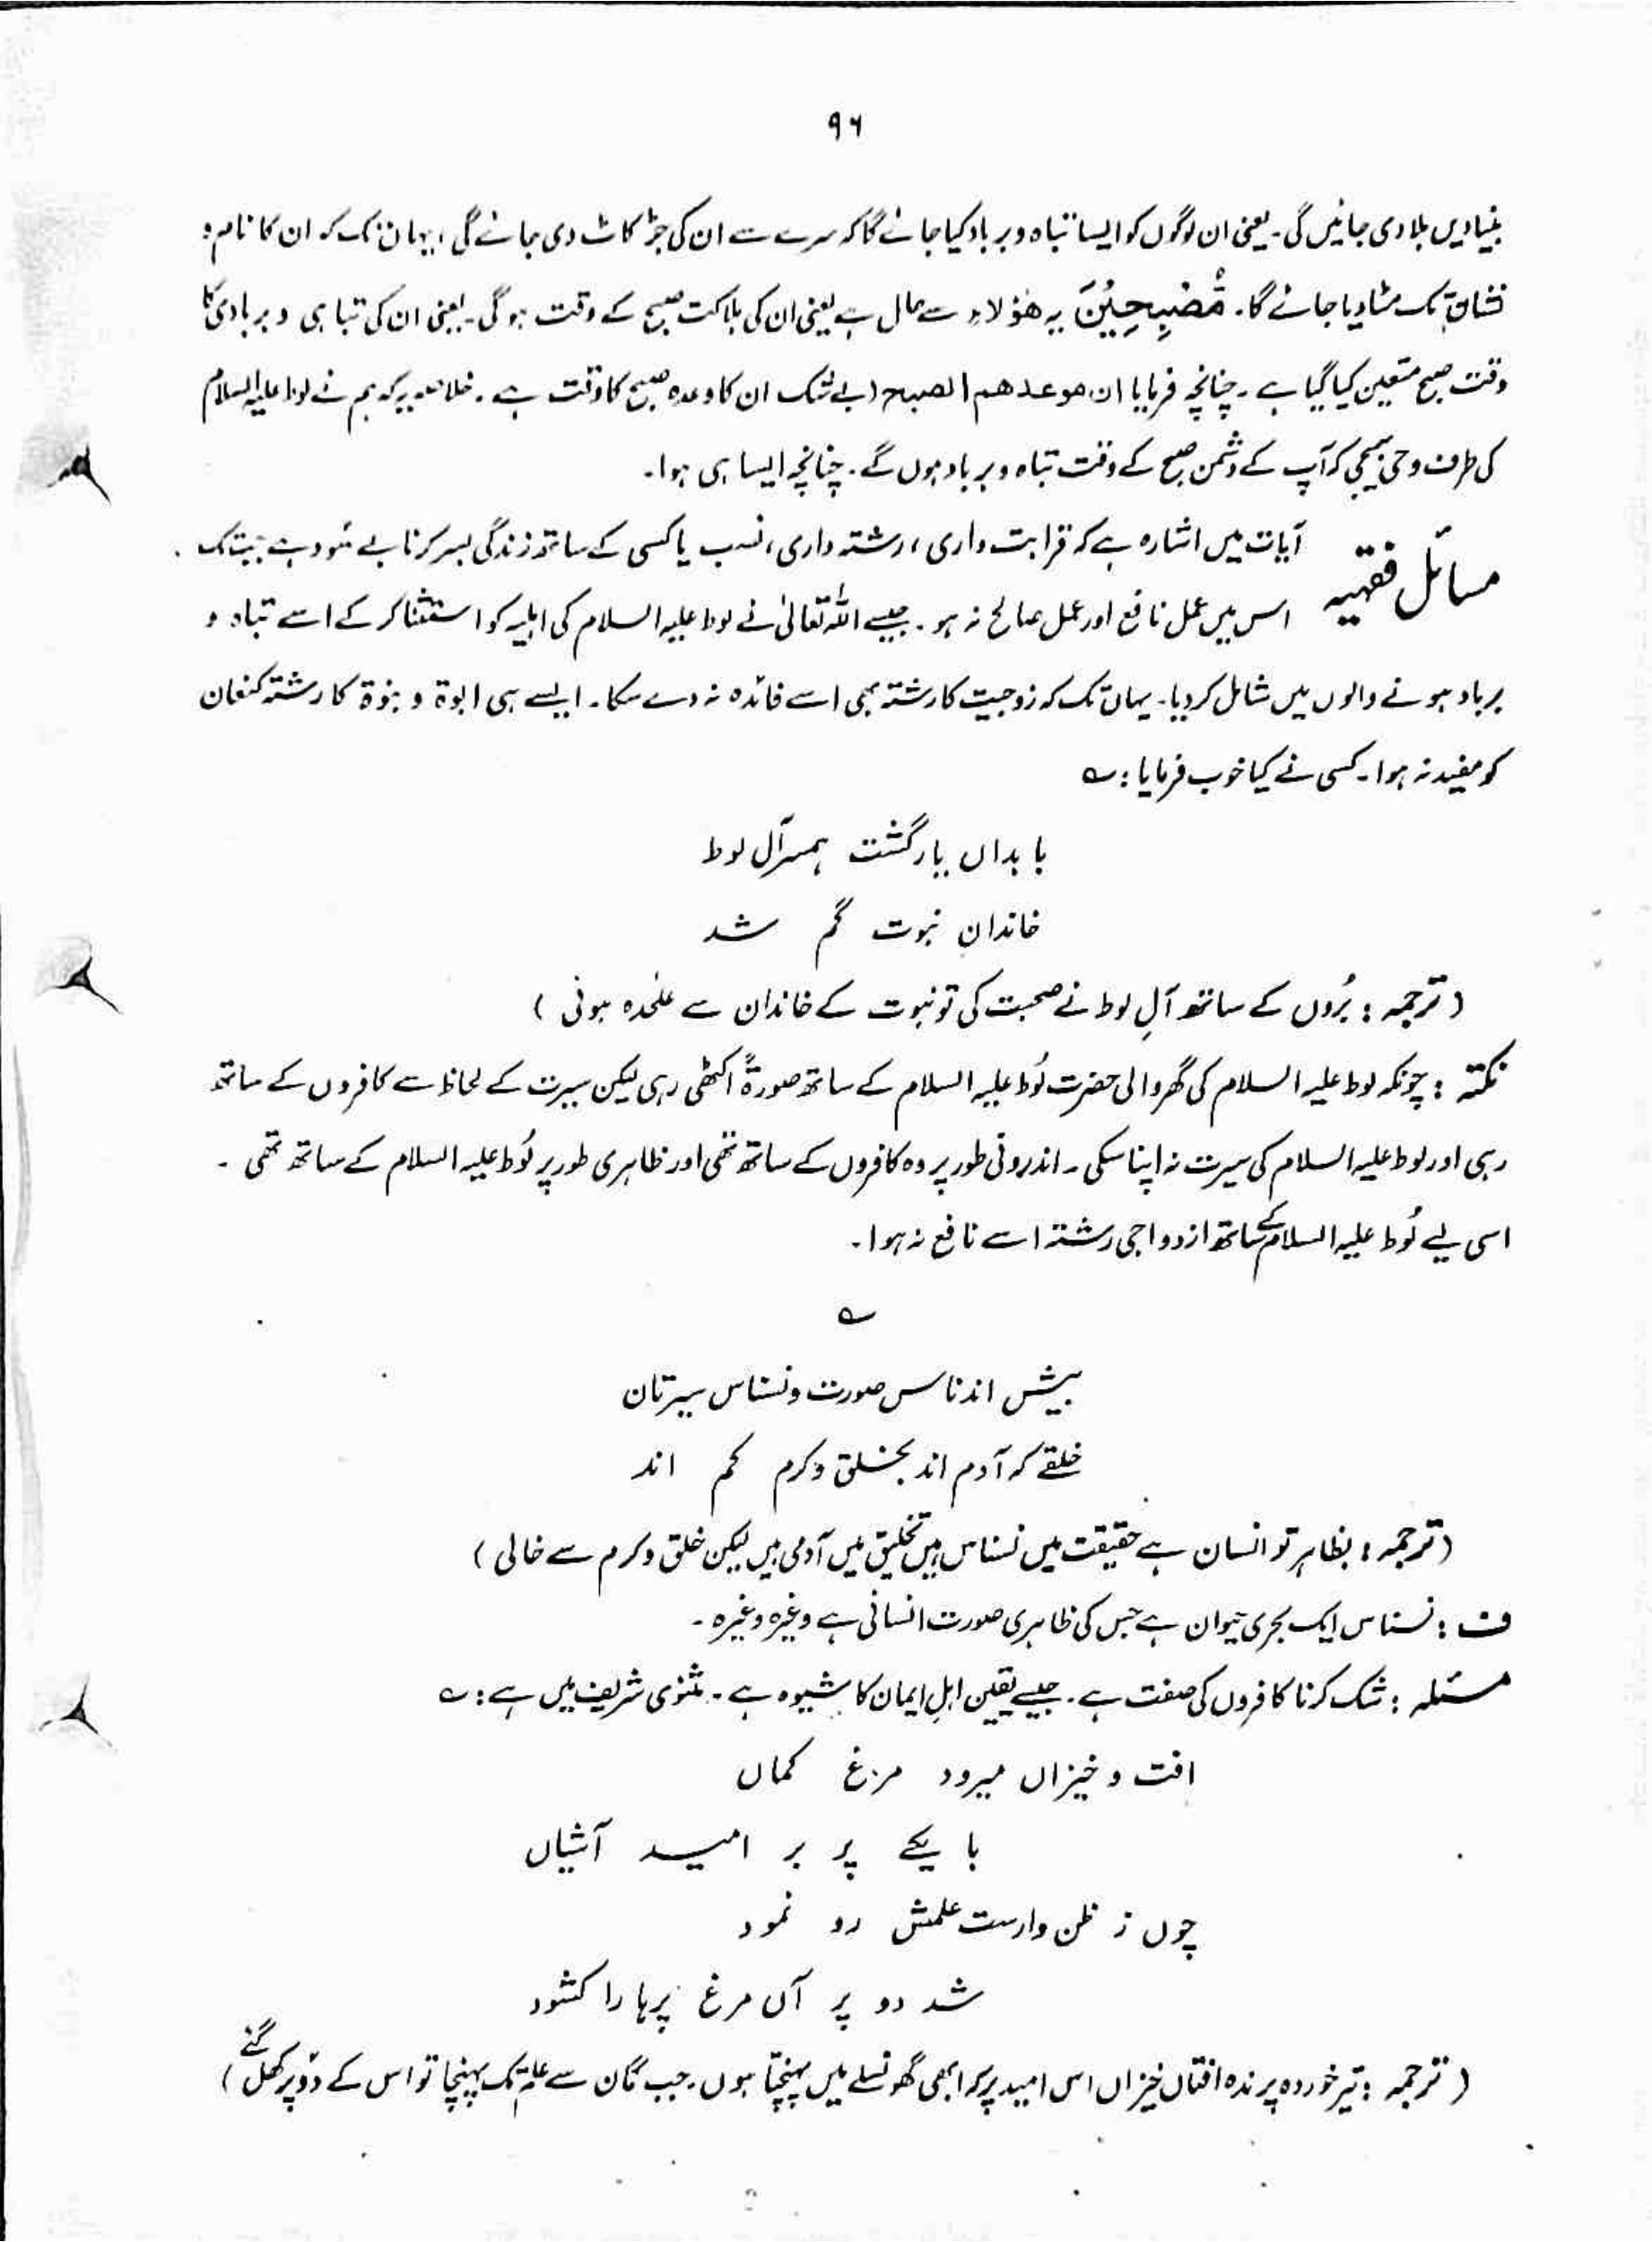 ۹۶
بنیادیں ہلا دی جائیں گی۔ یعنی ان لوگوں کو ایسا تباہ و برباد کیا جائے گا کہ سرے سے ان کی جڑ کاٹ دی جائے گی، یہاں تک کہ ان کا نام و
نشان تک مٹا دیا جائے گا۔ مُّصْبِحِیْنَ یہ ھٰؤلاءِ سے حال ہے یعنی ان کی ہلاکت صبح کے وقت ہوگی۔ یعنی ان کی تباہی و بربادی کا
وقت صبح متعین کیا گیا ہے۔ چنانچہ فرمایا ان موعدھم الصبح (بے شک ان کا وعدہ صبح کا وقت ہے۔ خلاصہ یہ کہ ہم نے لوط علیہ السلام
کی طرف وحی بھیجی کہ آپ کے دشمن صبح کے وقت تباہ و برباد ہوں گے۔ چنانچہ ایسا ہی ہوا۔
مسائل فقہیہ آیات میں اشارہ ہے کہ قرابت داری، رشتہ داری، نسب یا کسی کے ساتھ زندگی بسر کرنا بے سُود ہے جبتک
اس میں عمل نافع اور عمل صالح نہ ہو۔ جیسے اللہ تعالیٰ نے لوط علیہ السلام کی اہلیہ کو استثنا کر کے اسے تباہ و
برباد ہونے والوں میں شامل کر دیا۔ یہاں تک کہ زوجیت کا رشتہ بھی اسے فائدہ نہ دے سکا۔ ایسے ہی ابوۃ و بنوۃ کا رشتہ کنعان
کو مفید نہ ہوا۔ کسی نے کیا خوب فرمایا: ؎
با بداں یار گشت ہمسر آل لوط
خاندانِ نبوت گم شد
(ترجمہ: بُروں کے ساتھ آلِ لوط نے صحبت کی تو نبوت کے خاندان سے علٰحدہ ہوئی)
نکتہ: چونکہ لوط علیہ السلام کی گھر والی حضرت لُوط علیہ السلام کے ساتھ صورۃً اکٹھی رہی لیکن سیرت کے لحاظ سے کافروں کے ساتھ
رہی اور لوط علیہ السلام کی سیرت نہ اپنا سکی۔ اندرونی طور پر وہ کافروں کے ساتھ تھی اور ظاہری طور پر لُوط علیہ السلام کے ساتھ تھی۔
اسی لیے لُوط علیہ السلام کے ساتھ ازدواجی رشتہ اسے نافع نہ ہوا۔
؎
بیش اند ناس صورت و نسناس سیرتان
خلقے کہ آدم اند بخلق و کرم کم اند
(ترجمہ: بظاہر تو انسان ہے حقیقت میں نسناس ہیں تخلیق میں آدمی ہیں لیکن خلق و کرم سے خالی)
ف: نسناس ایک بحری حیوان ہے جس کی ظاہری صورت انسانی ہے وغیرہ وغیرہ۔
مسئلہ: شک کرنا کافروں کی صفت ہے۔ جیسے یقین اہلِ ایمان کا شیوہ ہے۔ مثنوی شریف میں ہے: ؎
افت و خیزاں میرود مرغ گماں
با یکے پر بر امید آشیاں
چوں ز ظن وارست علمش رو نمود
شد دو پر آں مرغ پرہا را کشود
(ترجمہ: تیر خوردہ پرندہ افتاں خیزاں اس امید پر کہ ابھی گھونسلے میں پہنچتا ہوں۔ جب گمان سے علم تک پہنچا تو اس کے دو پر کھل گئے)